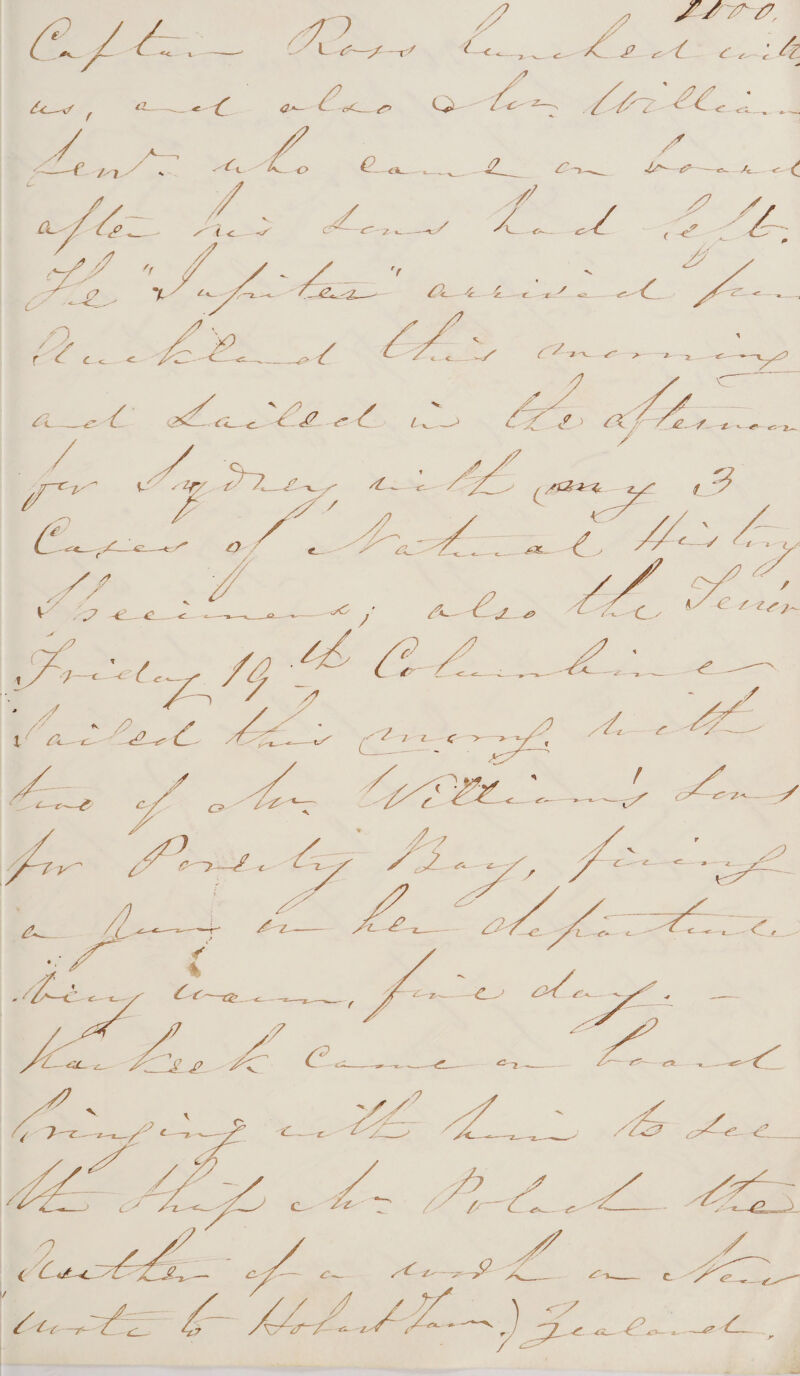 Captain Ross lunched with
us, and also Mr. William
Senr. who came on board
after his sons had left.
The "Jupiter" arrived from
Auckland this morning
and sailed in the afternoon
for Sydney, with my 3
Cases of Natural History
Specimens; also the
Friday 19th Columbine
Sailed this morng. with
two of Mr. William's sons
for Poverty Bay, firing
a gun on her departure
Very warm, fine day. -
Karkeek came on board
bringing with him to see
the Ship Mr. Polack the
Author of a work on New
wrote to Hobart Town.) Zealand.